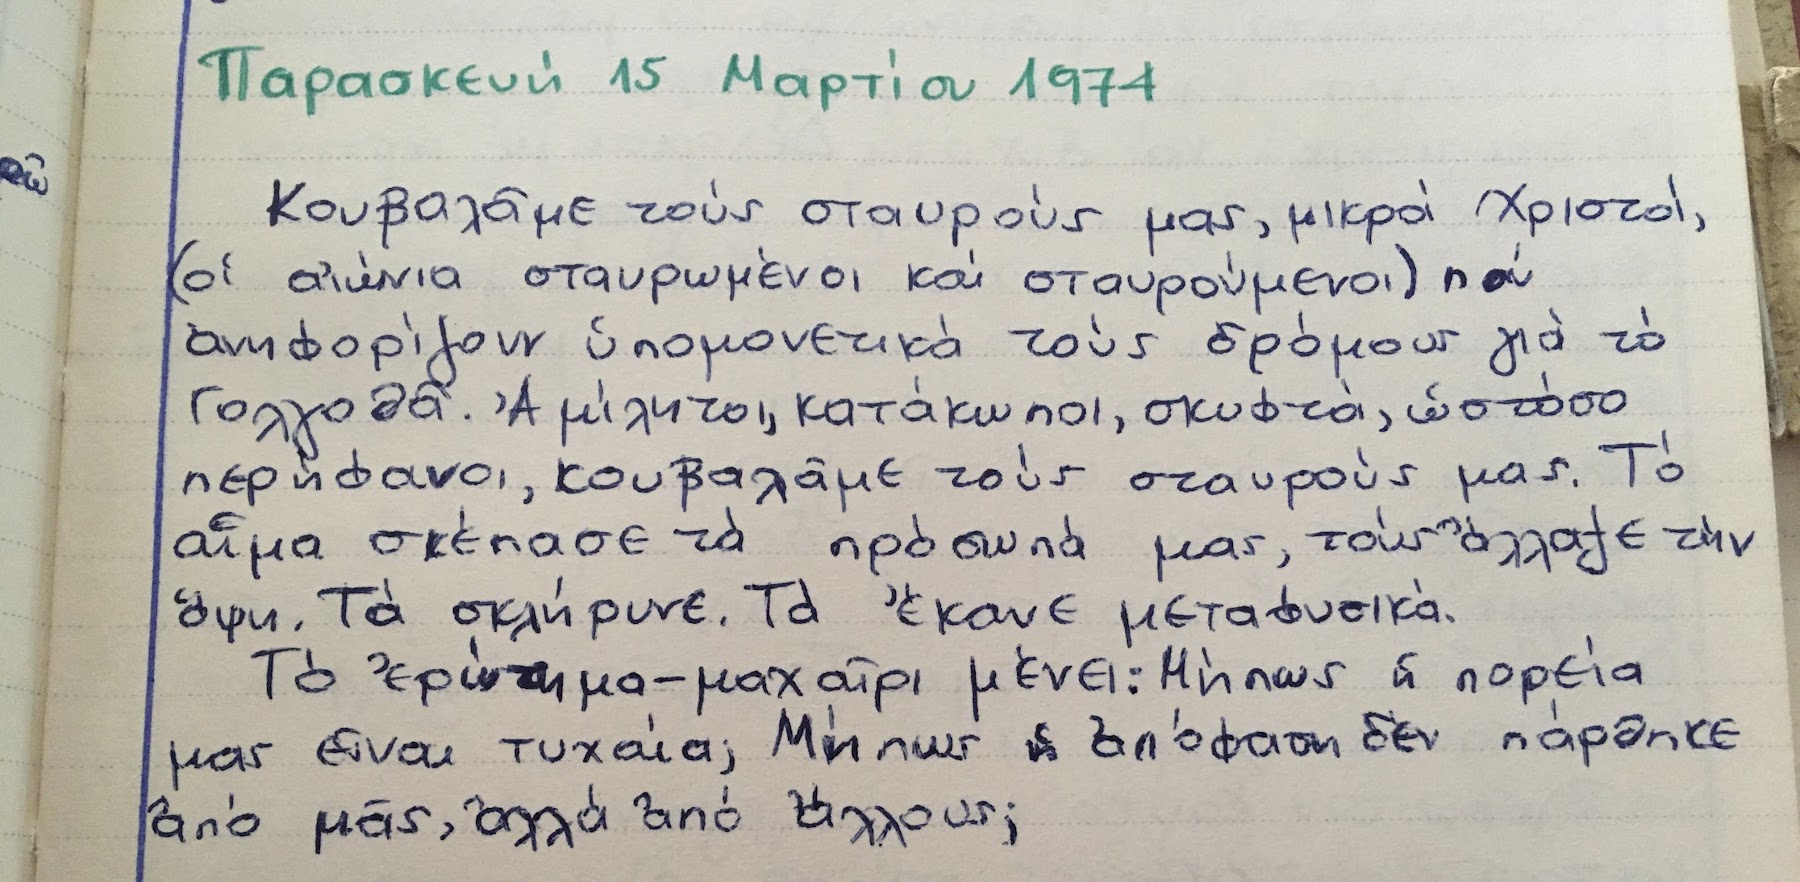 Παρασκευή 15 Μαρτίου 1974
Κουβαλᾶμε τούς σταυρούς μας, μικροί Χριστοί,
(οἱ αἰώνια σταυρωμένοι καί σταυρούμενοι) πού
ἀνηφορίζουν ὑπομονετικά τούς δρόμους γιὰ τό
Γολγοθᾶ. Ἀμίλητοι, κατάκωποι, σκυφτοί, ὡστόσο
περήφανοι, κουβαλᾶμε τούς σταυρούς μας. Τό
αἷμα σκέπασε τά πρόσωπά μας, τούς ἄλλαξε τὴν
ὄψη. Τά σκλήρυνε. Τά ἔκανε μεταφυσικά.
Τό ἐρώτημα-μαχαῖρι μένει: Μήπως ἡ πορεία
μας εἶναι τυχαία; Μήπως ἡ ἀπόφαση δέν πάρθηκε
ἀπό μᾶς, ἀλλά ἀπό ἄλλους;